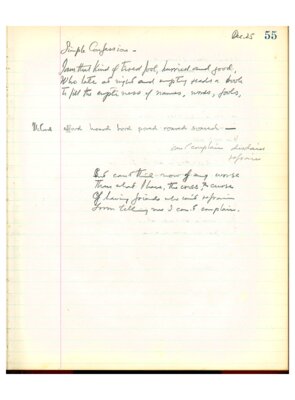 Dec. 25 55
Simple Confession -
I am that kind of tired fool, hurried and good,
Who late at night and empty reads a book
To fill the emptiness of names, words, fools,
afford hoard board gourd
can't complain disdains
refrains
But can't think now of any worse
Than what I have, the curse
Of having friends who can't refrain
From telling me I can't complain.